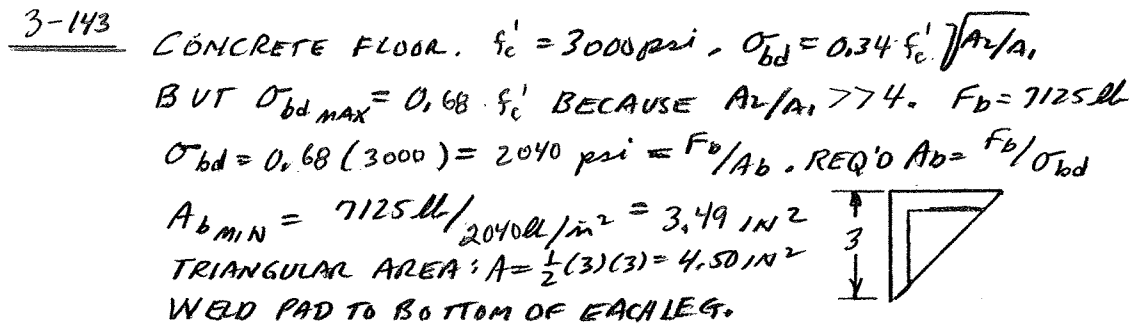 3-143 CONCRETE FLOOR. f'c = 3000 psi. σbd = 0.34 f'c √A2/A1
BUT σbd MAX = 0.68 f'c BECAUSE A2/A1 >> 4. Fb = 7125 lb
σbd = 0.68 (3000) = 2040 psi = Fb/Ab. REQ'D Ab = Fb/σbd
Ab MIN = 7125 lb/2040 lb/in² = 3.49 IN²
3
TRIANGULAR AREA: A = ½(3)(3) = 4.50 IN²
WELD PAD TO BOTTOM OF EACH LEG.